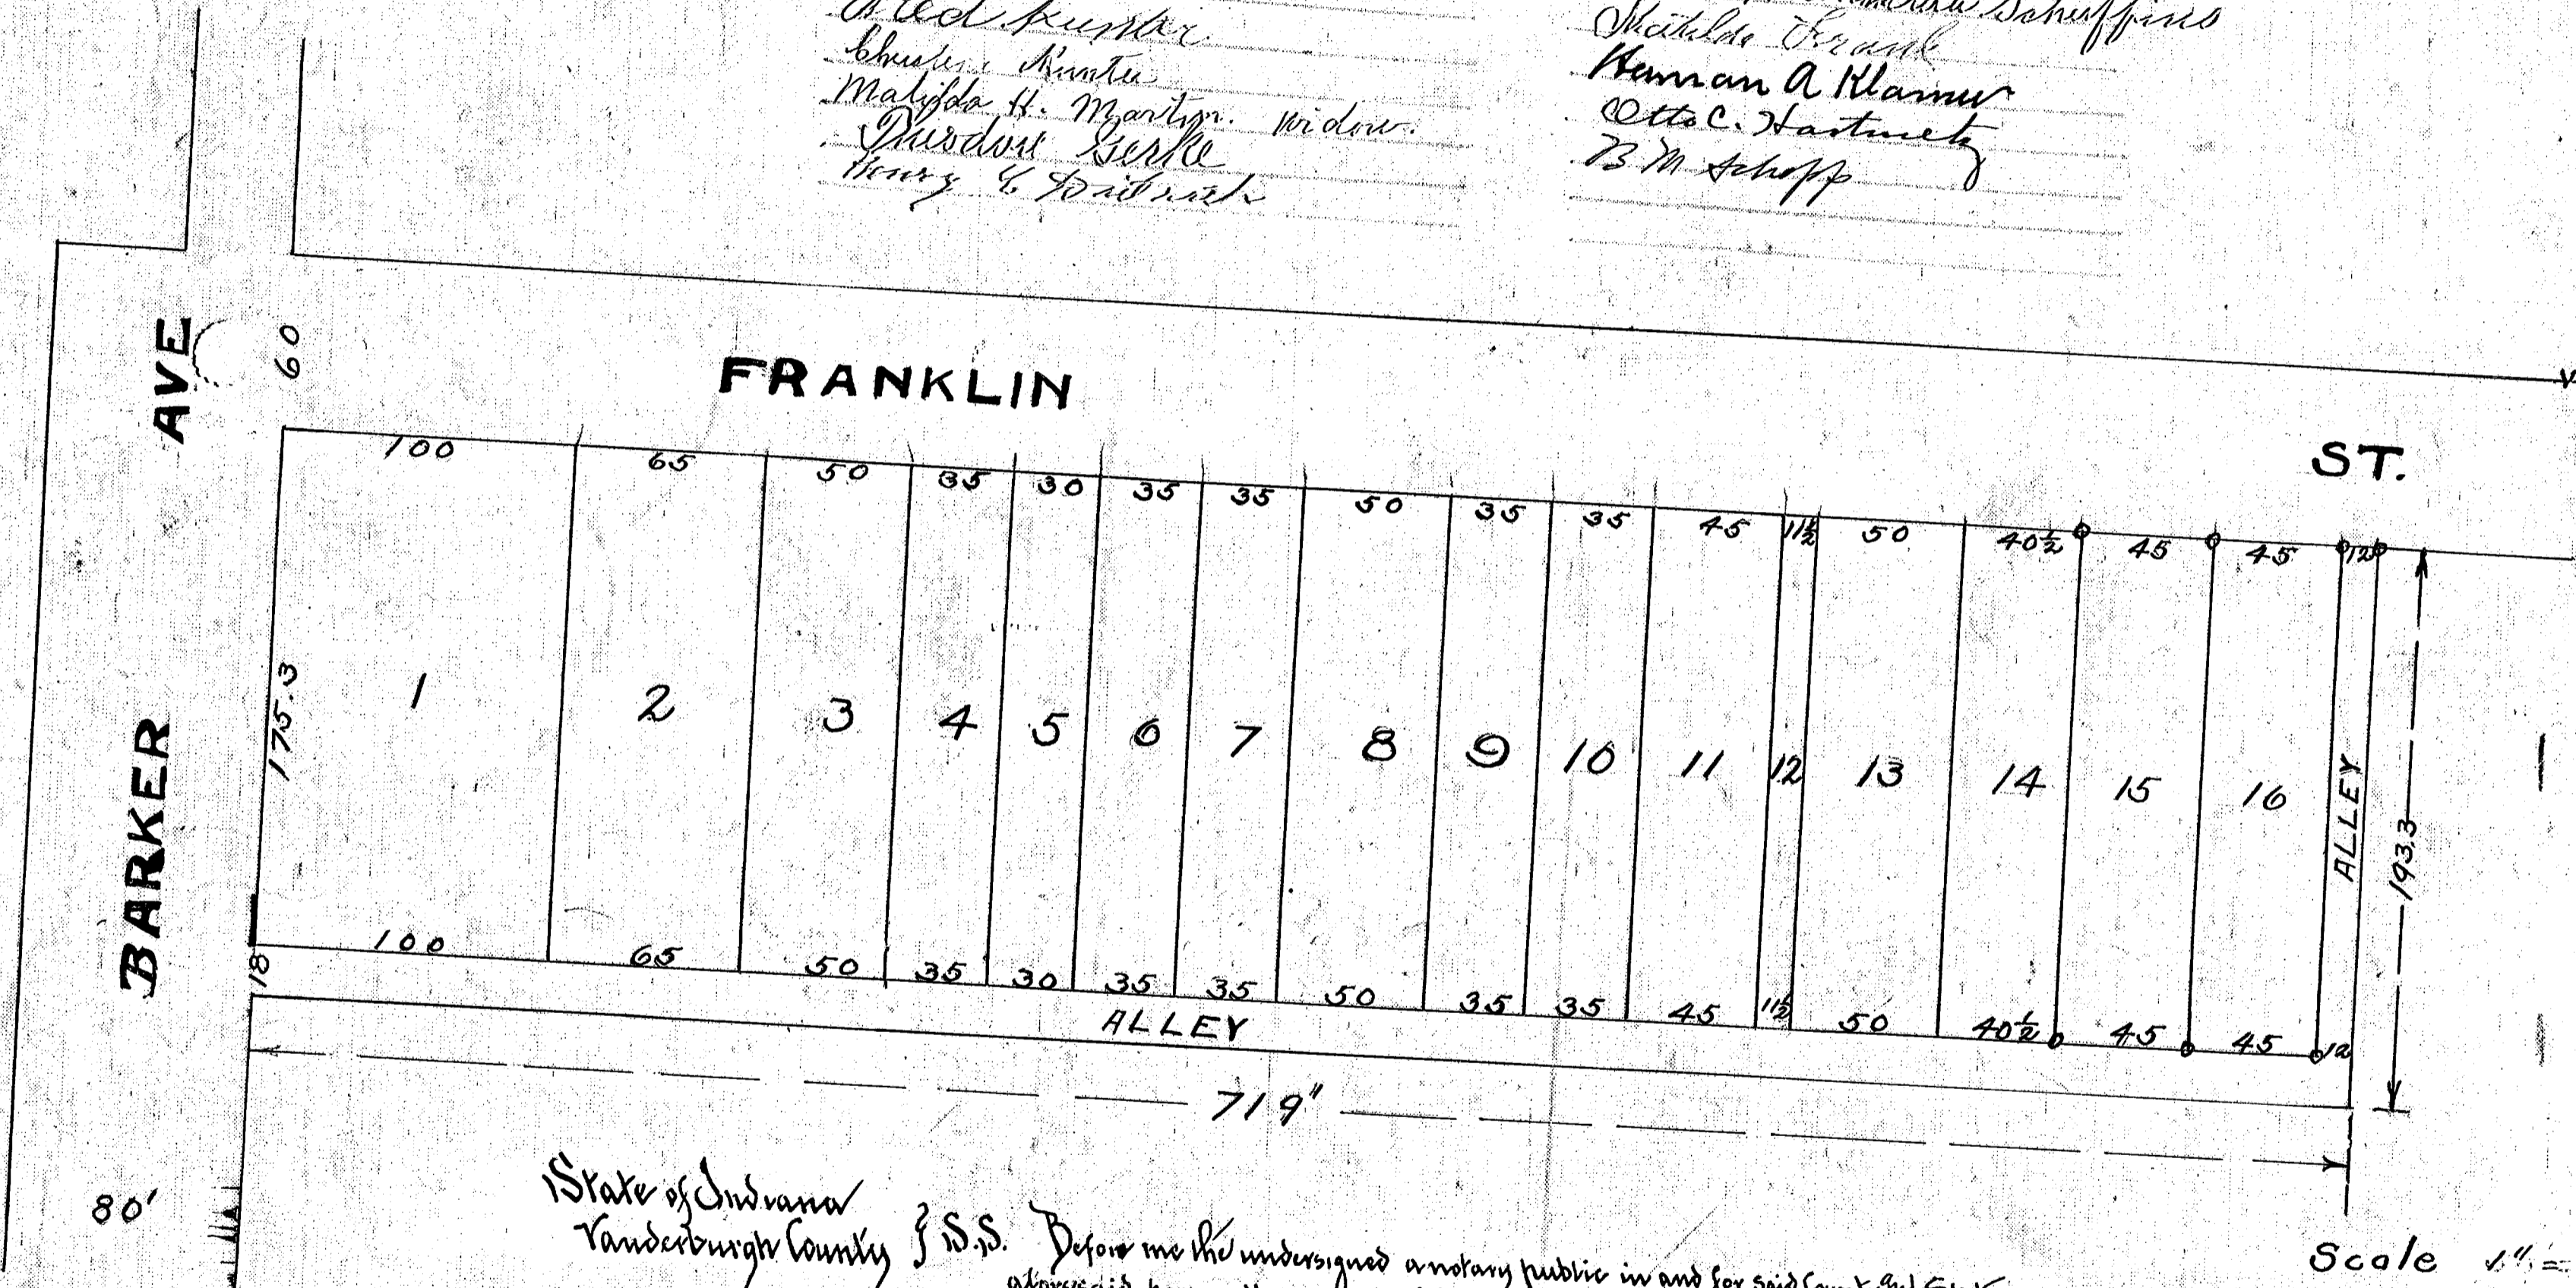 Matilda H. Martin. widow.
Theodore Gerke
Scheffing
Mathilde Frank
Herman A Klamer
Otto C. Hartmetz
B M Schopp
BARKER AVE
60
FRANKLIN ST.
100 65 50 35 30 35 35 50 35 35 45 11½ 50 40½ 45 45 12
175.3
1 2 3 4 5 6 7 8 9 10 11 12 13 14 15 16
ALLEY
193.3
100 65 50 35 30 35 35 50 35 35 45 11½ 50 40½ 45 45 12
18
ALLEY
719"
80'
State of Indiana
Vanderburgh County } S.S. Before me the undersigned a notary public in and for said
Scale 1" =